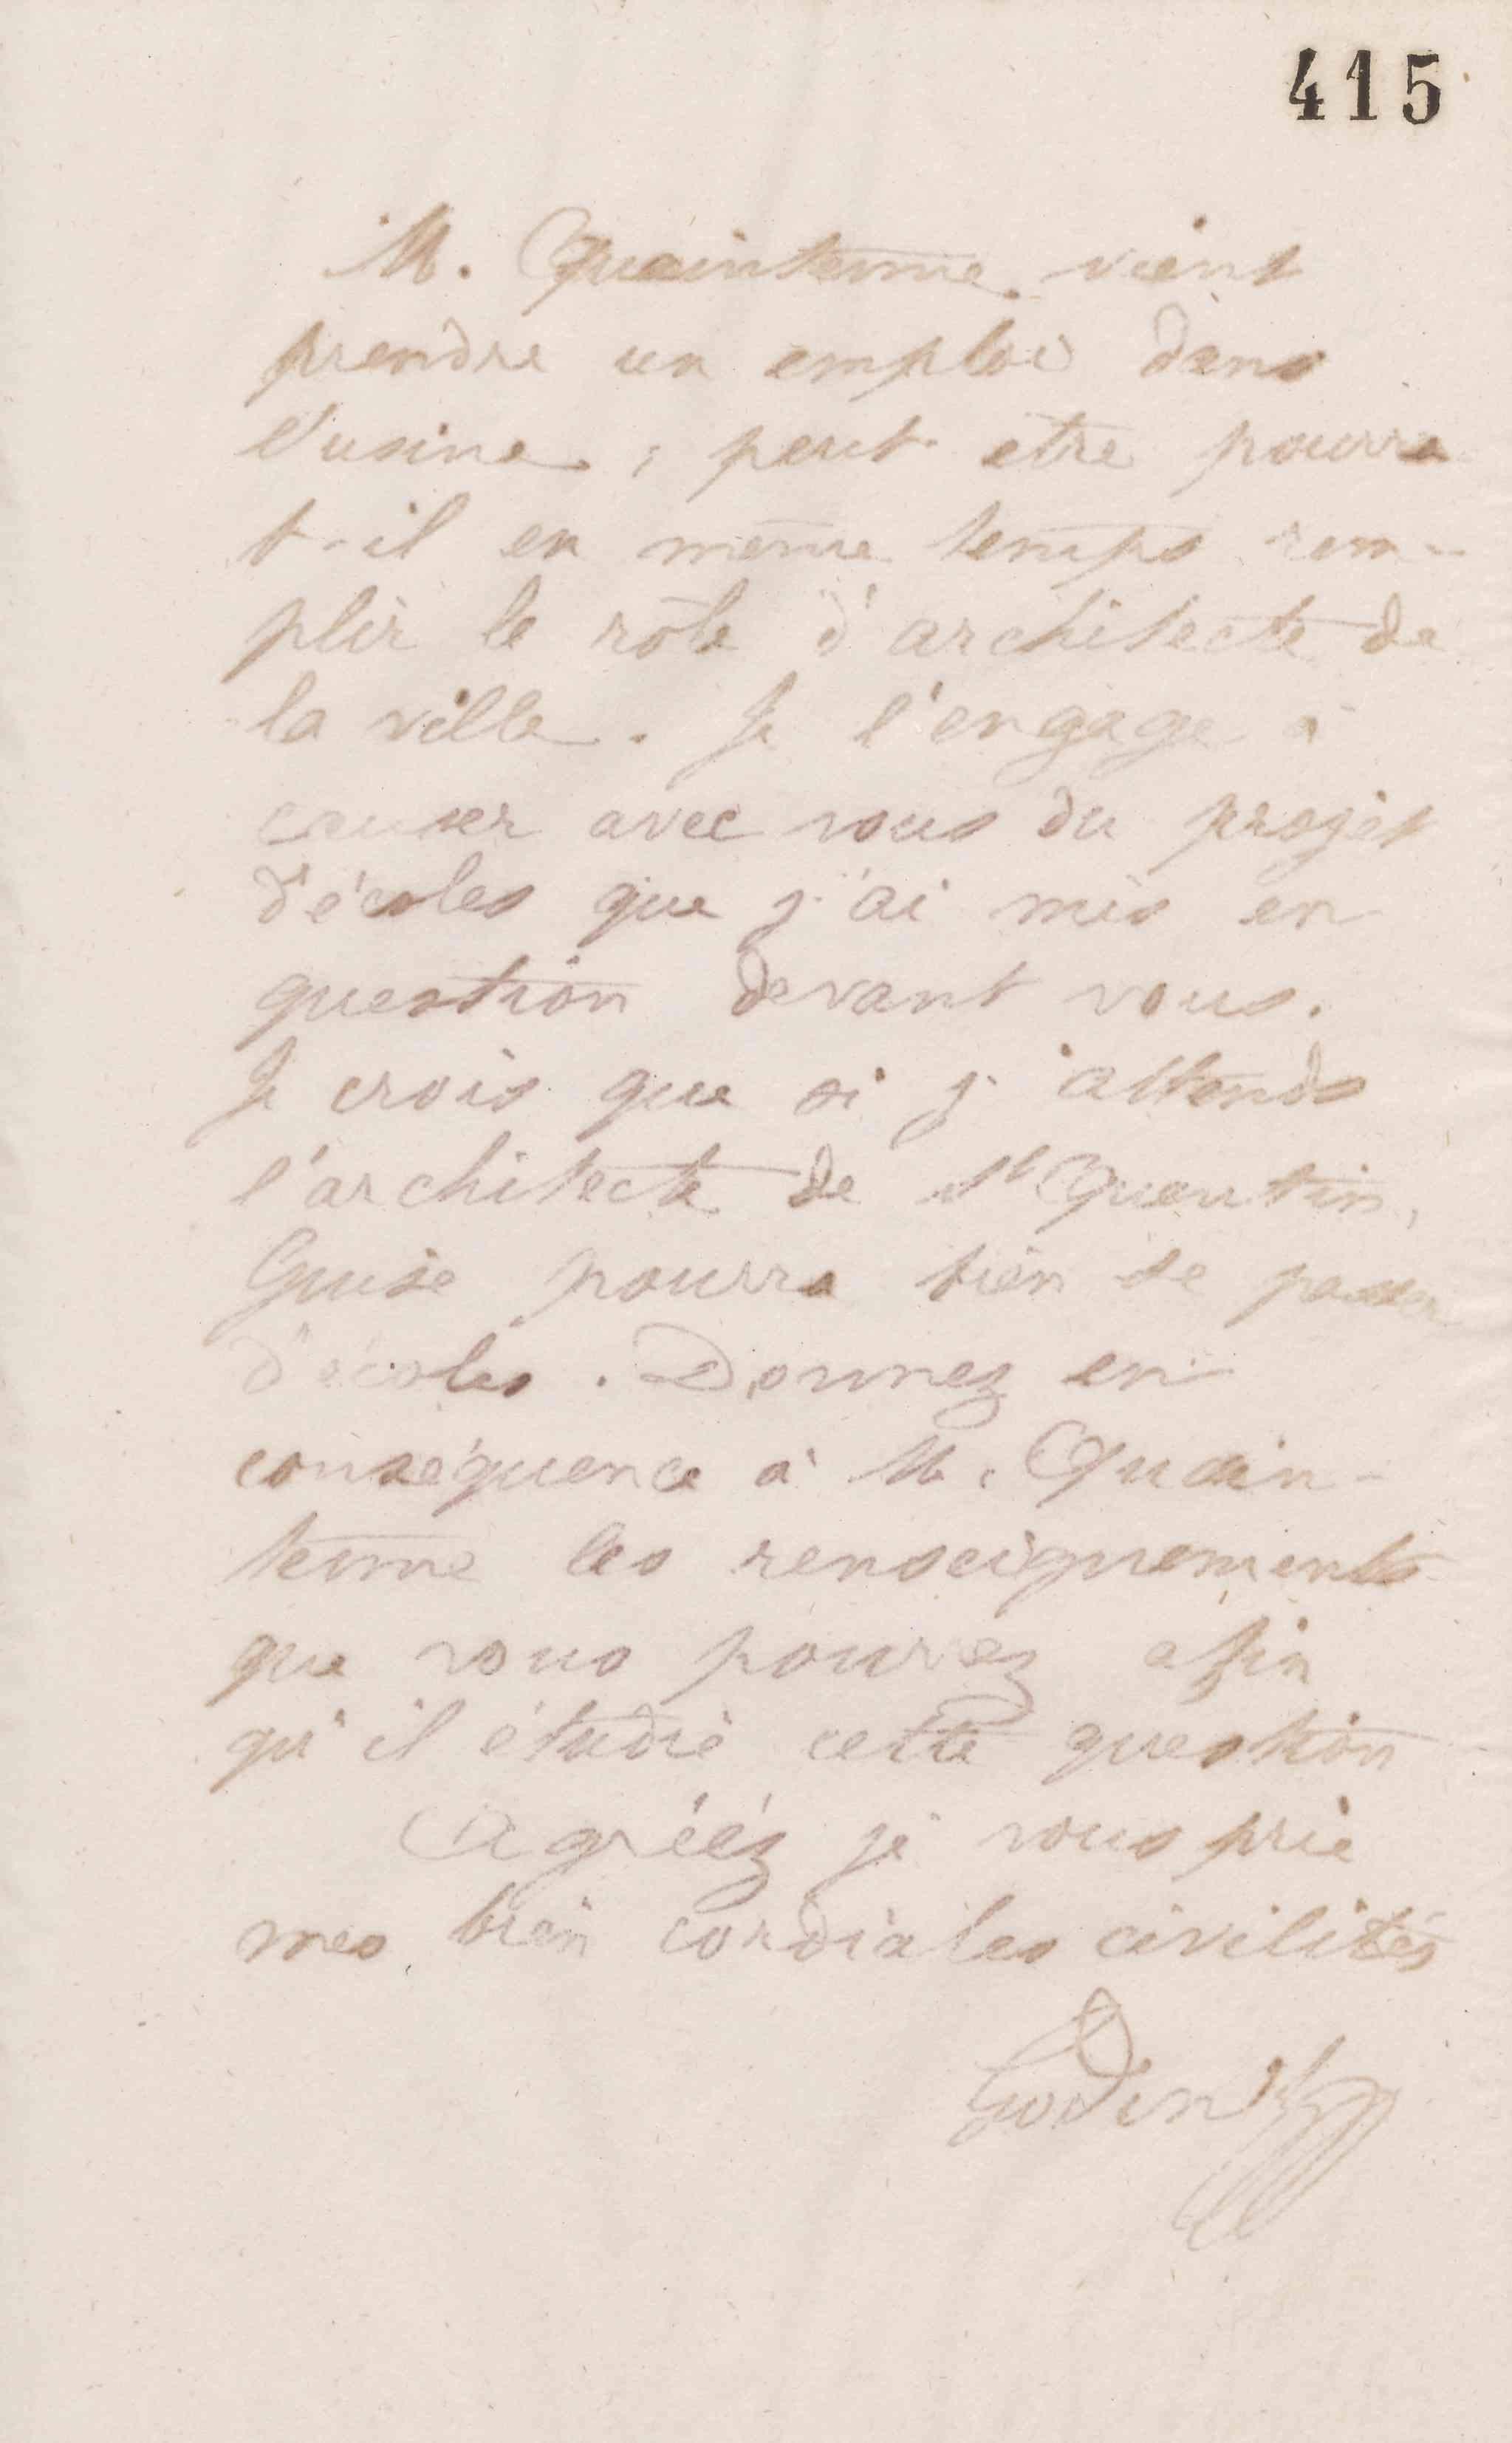 415
M. Quaintenne vient
prendre un emploi dans
l'usine ; peut être pourra
t-il en même temps rem-
plir le rôle d'architecte de
la ville. Je l'engage à
causer avec vous du projet
d'écoles que j'ai mis en
question devant vous.
Je crois que si j'attends
l'architecte de St Quentin,
Guise pourra bien se passer
d'écoles. Donnez en
conséquence à M. Quain-
tenne les renseignements
que vous pourrez afin
qu'il étudie cette question
Agréez je vous prie
mes bien cordiales civilités
Godin